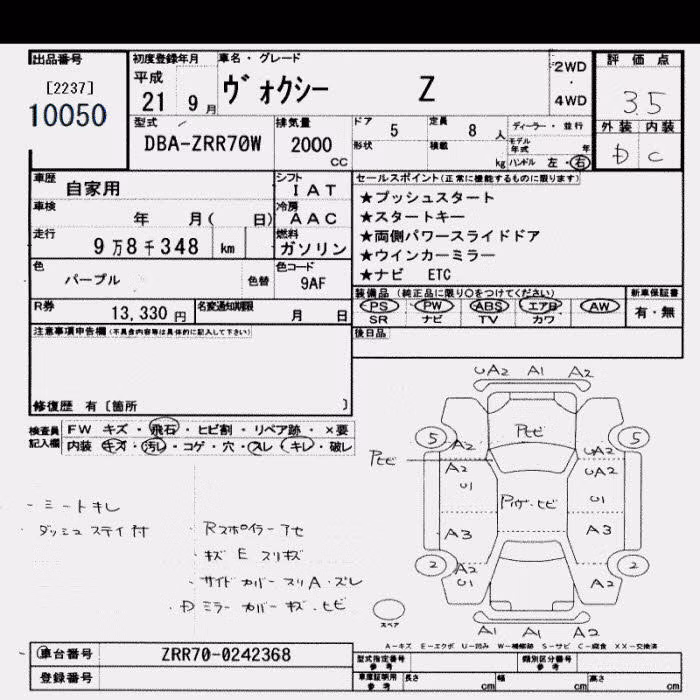 出品番号 初度登録年月 車名・グレード 2WD・4WD 評価点
[2237] 10050 平成 21 9月 ヴォクシー Z 3.5
外装 内装
D C
型式 DBA-ZRR70W 排気量 2000 CC ドア 5 定員 8人 ディーラー・並行
形状 積載 kg モデル年式 年
ハンドル 左・右
車歴 自家用 シフト IAT
車検 年 月( 日) 冷房 AAC
走行 9万8千348 km 燃料 ガソリン
色 パープル 色替 色コード 9AF
R券 13,330円 名変通知期限 月 日
セールスポイント(正常に機能するものに限ります)
★プッシュスタート
★スタートキー
★両側パワースライドドア
★ウインカーミラー
★ナビ ETC
装備品(純正品に限り○をつけてください) 新車保証書
PS PW ABS エアB AW 有・無
SR ナビ TV カワ
後日品
注意事項申告欄(不具合内容等は具体的に記入して下さい)
修復歴 有〔箇所 〕
検査員記入欄 FW キズ・飛石・ヒビ割・リペア跡・×要
内装 キズ・汚レ・コゲ・穴・スレ・キレ・破レ
UA2 A1 A2
Pヒビ
5 5
A2 A2
Pヒビ
A2 UA2
U1 U1
A3 A3
2 2
A2 A2
U1
A1 A1 A2
スペア
・シートキレ
・ダッシュ ステイ付
・Rスポイラー アセ
・キズ E スリキズ
・サイド カバー スリA・ズレ
・D ミラー カバー キズ・ヒビ
A-キズ E-エクボ U-凹み W-補修跡 S-サビ C-腐食 XX-交換済
車台番号 ZRR70-0242368
登録番号
型式指定番号 参考 類別区分番号 参考
車庫証明用 参考 長さ cm 幅 cm 高さ cm